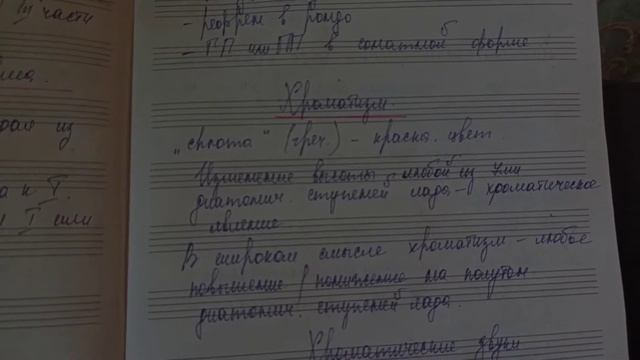 III части
- рефрен в рондо
- ГП или ПП в сонатной форме
Хроматизм.
"chroma" (греч.) - краска. цвет.
Изменение высоты любой из 7ми
диатонич. ступеней лада - хроматическое
явление
В широком смысле хроматизм - любое
повышение / понижение на полутон
диатонич. ступеней лада.
Хроматические звуки
из
а к I
I или